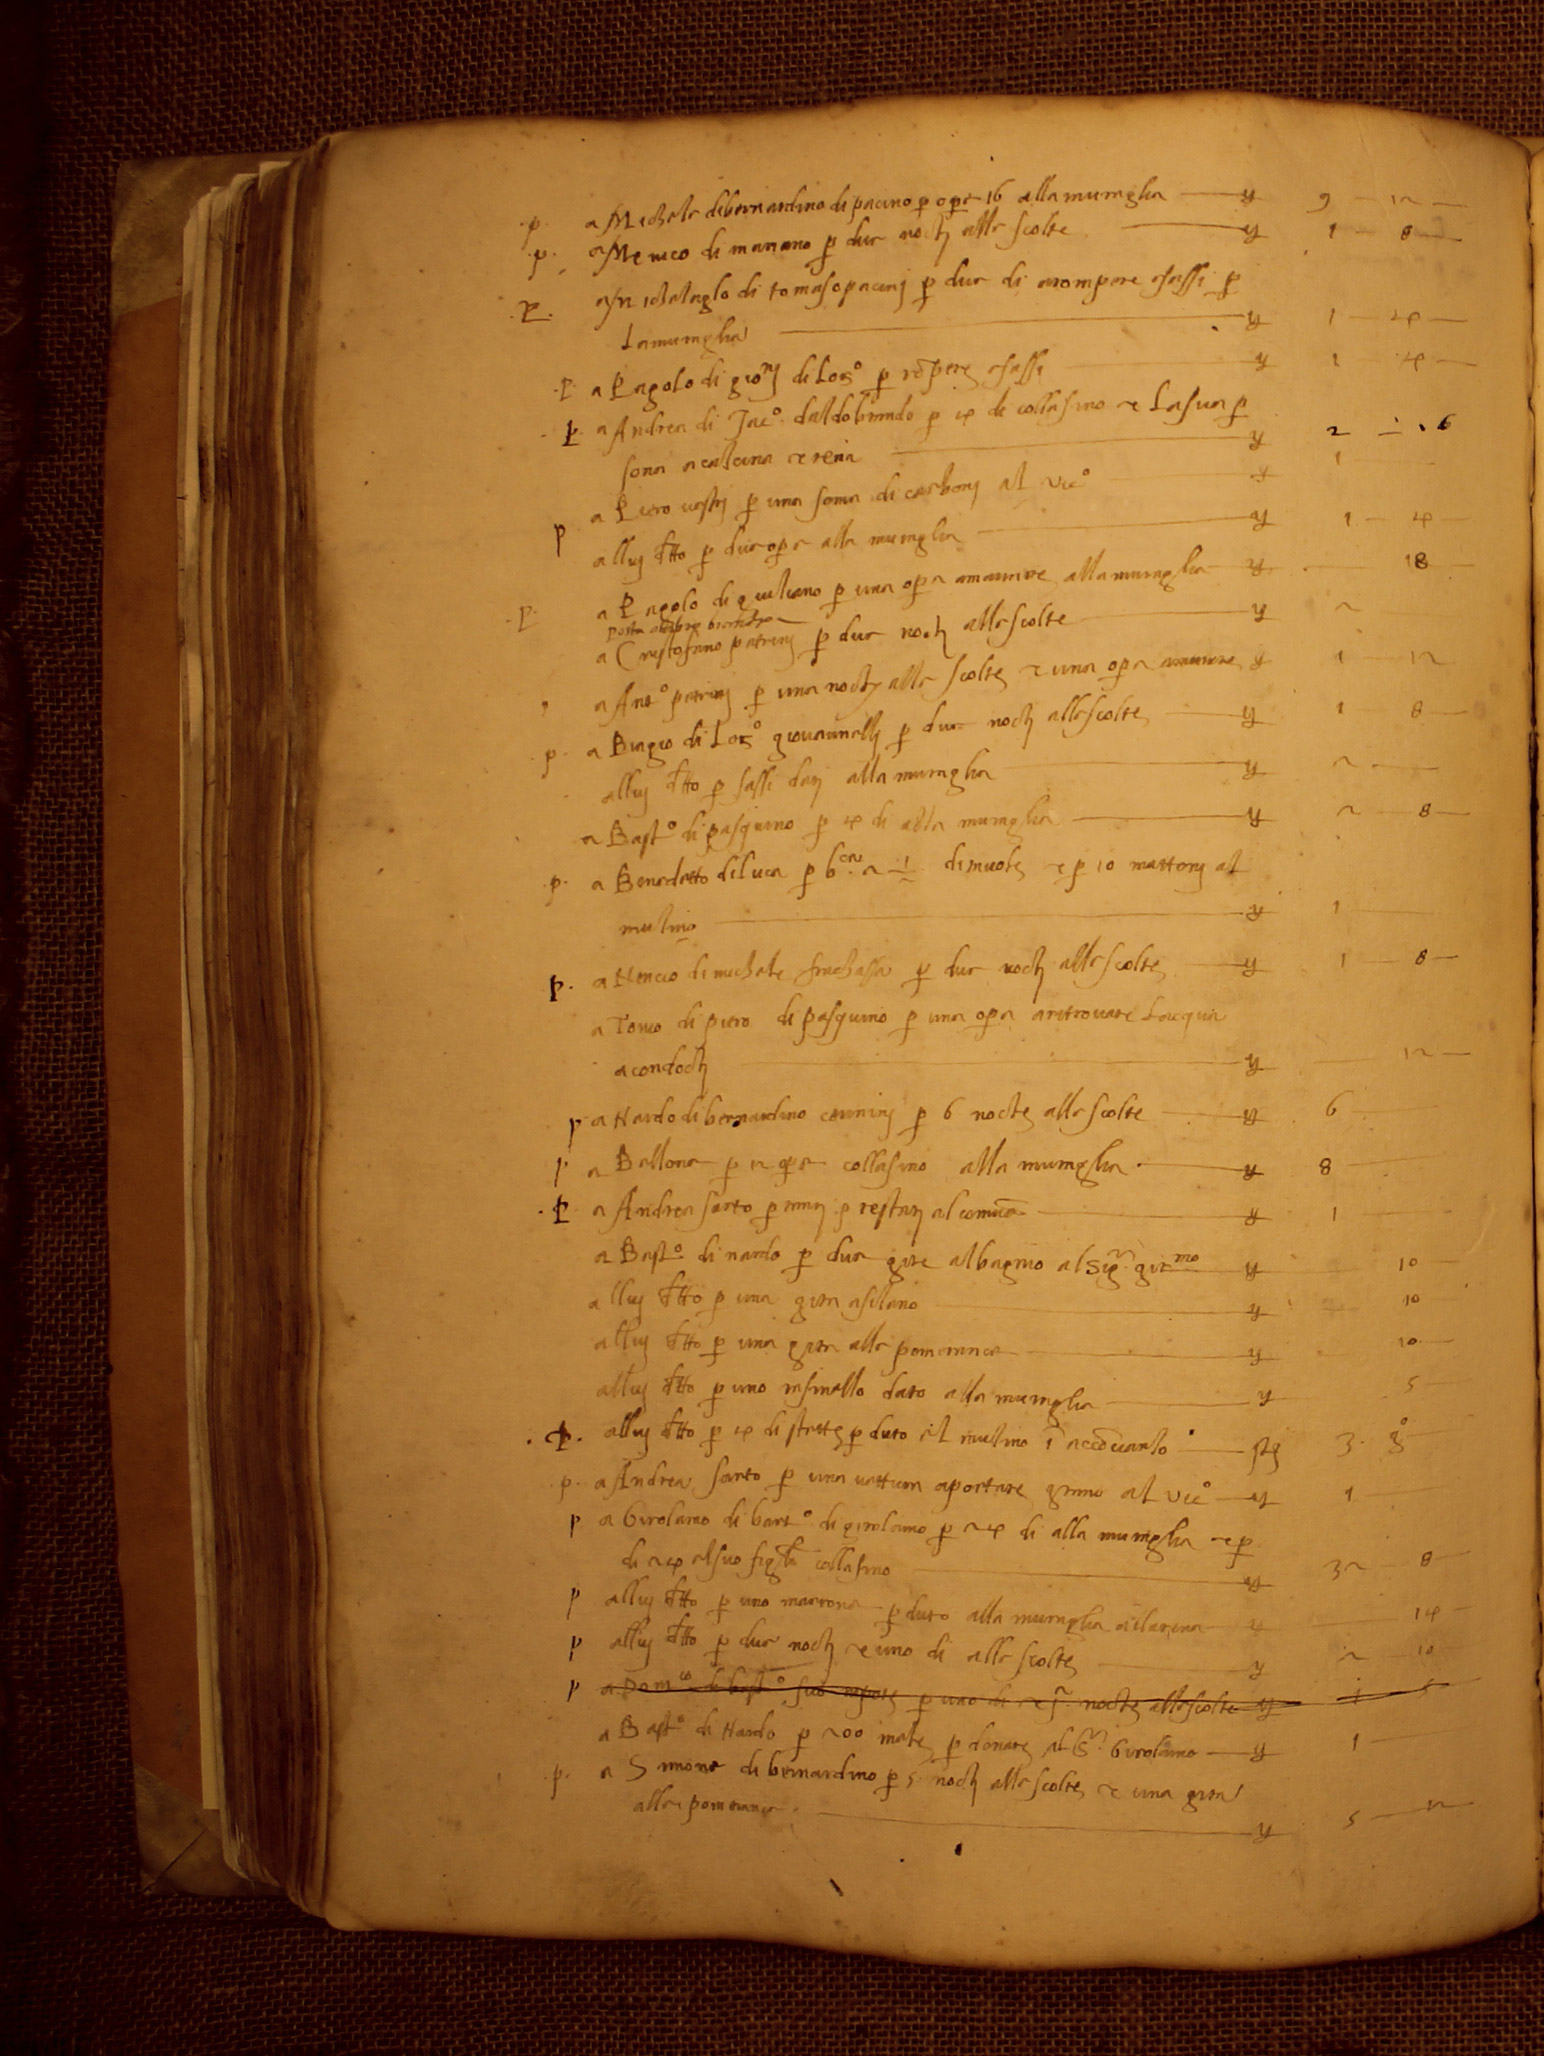 p. a Michele di bernardino di pacino p opere 16 alla muraglia — y 9 — 12 —
p. a Menco di mariano p due nocti alle scolte — y 1 — 8 —
p. a Michelaglo di tomaso pacinj p due di a rompere e sassi p
La muraglia — y 1 — 4 —
p. a Pagolo di gionj di Lorº p rōpere e sassi — y 1 — 4 —
p. a Andrea di Jacº daldobrando p 4 di collasino e La sua p
sona a calcina e rena — y 2 — 16
a Piero p una soma di carbonj al vicº — y 1 —
p alluj dtto p due opere alla muraglia — y 1 — 4 —
p. a Pagolo di giuliano p una opera a murare alla muraglia — y — 18 —
posta a libro
a Cristofano patrinj p due nocti alle scolte — y 2
a Antº patrinj p una nocte alle scolte e una opera a murare y 1 — 12
p. a Biagio di Lorº giovannellj p due nocti alle scolte — y 1 — 8 —
alluj dtto p sassi datj alla muraglia — y 2 —
a Bastº di pasquino p 4 di alla muraglia — y 2 — 8 —
p. a Benedetto di luca p di e p 10 mattonj al
mulino — y 1 —
p. a Nencio di michele p due nocti alle scolte — y 1 — 8 —
a Tonio di piero di pasquino p una opera a ritrovare Lacqua
a condoctj — y — 12 —
p a Nardo di bernardino p 6 nocte alle scolte — y 6
p a Ballone p 2 opere collasino alla muraglia — y 8 —
p. a Andrea sarto p p restatj al comūo — y 1 —
a Bastº di nardo p due gite al bagnio al Sigr girmo y — 10 —
alluj dtto p una gita a silano — y — 10
alluj dtto p una gita alle pomerance — y — 10 —
alluj dtto p uno dato alla muraglia — y 5 —
p. alluj dtto p 4 di al mulino — 3 —
p. a Andrea sarto p una vettura a portare grano al vicº — y 1 —
p a Girolamo di bartº di girolamo p 24 di alla muraglia e p
di 24 el suo figlo collasino — y 32 — 8 —
p alluj dtto p uno marrone pduto alla muraglia — y — 14 —
p alluj dtto p due nocti e uno di alle scolte — y 2 — 10
p a Domco di bastº suo nipote p uno di e j nocte alle scolte y 1 — 5
a Bastº di Nardo p 200 p donare al Sr Girolamo — y 1 —
p. a Simone di bernardino p 5 nocti alle scolte e una gita
alle pomerance — y 5 — 12